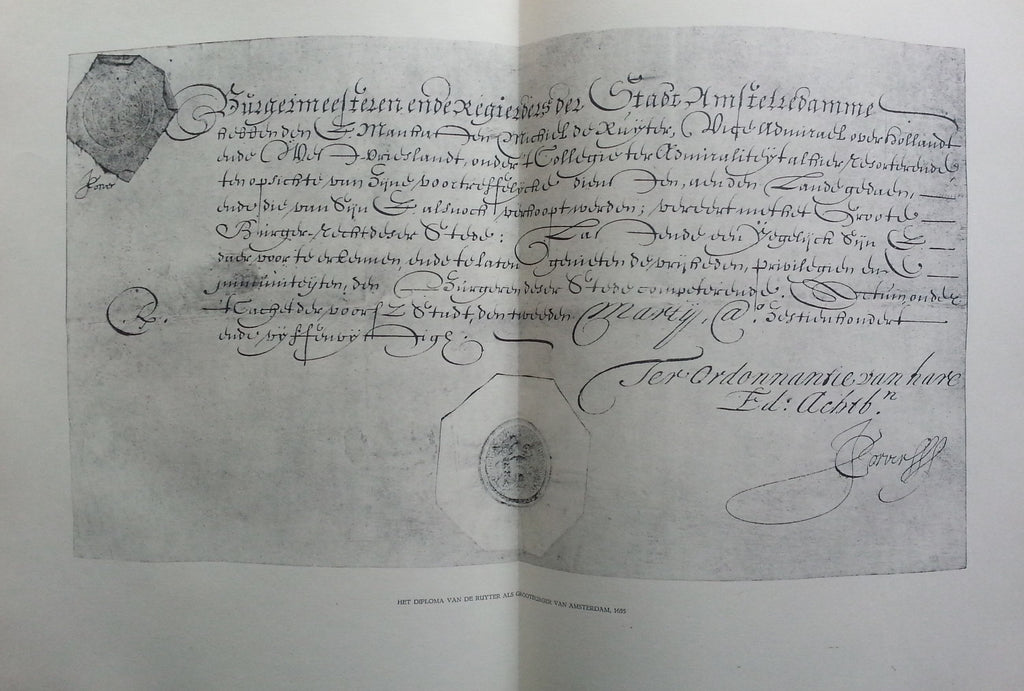 Bürgermeesteren ende Regierders der Stadt Amstelredamme
hebben den E. Manhaften Michiel de Ruÿter, Vice Admirael over hollandt
ende West-Vrieslandt, onder 't Collegie ter Admiraliteÿt alhier resorterende
ten opsichte van Zÿne voortreffelÿcke diensten, aen den Lande gedaen,
ende die van Sÿn E. alsnoch verhoopt werden; vereert met het Groote
Bürger-recht deser Stede: Lastende een Ÿegelÿck Sÿn E
daer voor te erkennen, ende te laten genieten de vrÿheden, privilegien en
immuniteÿten, den Bürgeren deser Stede competerende. Actum, onder
't Cachet der voorsz Stadt, den tweeden Martÿ, Aº. Zestienhondert
ende vÿffenvÿftigh:
Ter Ordonnantie van hare
Ed: Achtb.n
HET DIPLOMA VAN DE RUYTER ALS GROOTBURGER VAN AMSTERDAM, 1655